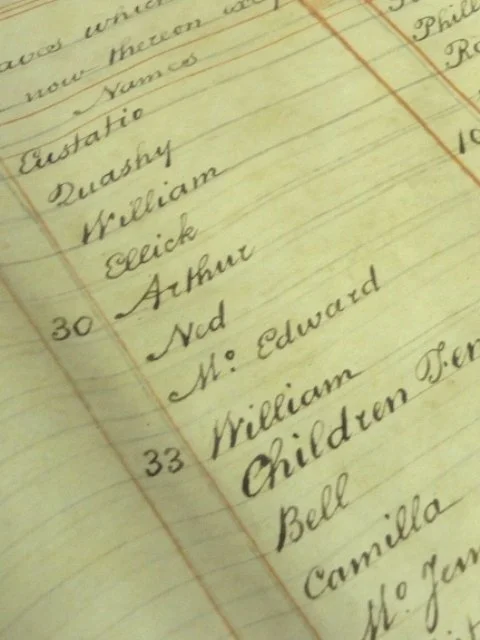 which
now thereon
Names
Eustatio
Quashy
William
Ellick
Arthur
30 Ned
Mº Edward
William
33 Children
Bell
Camilla
Mº
10